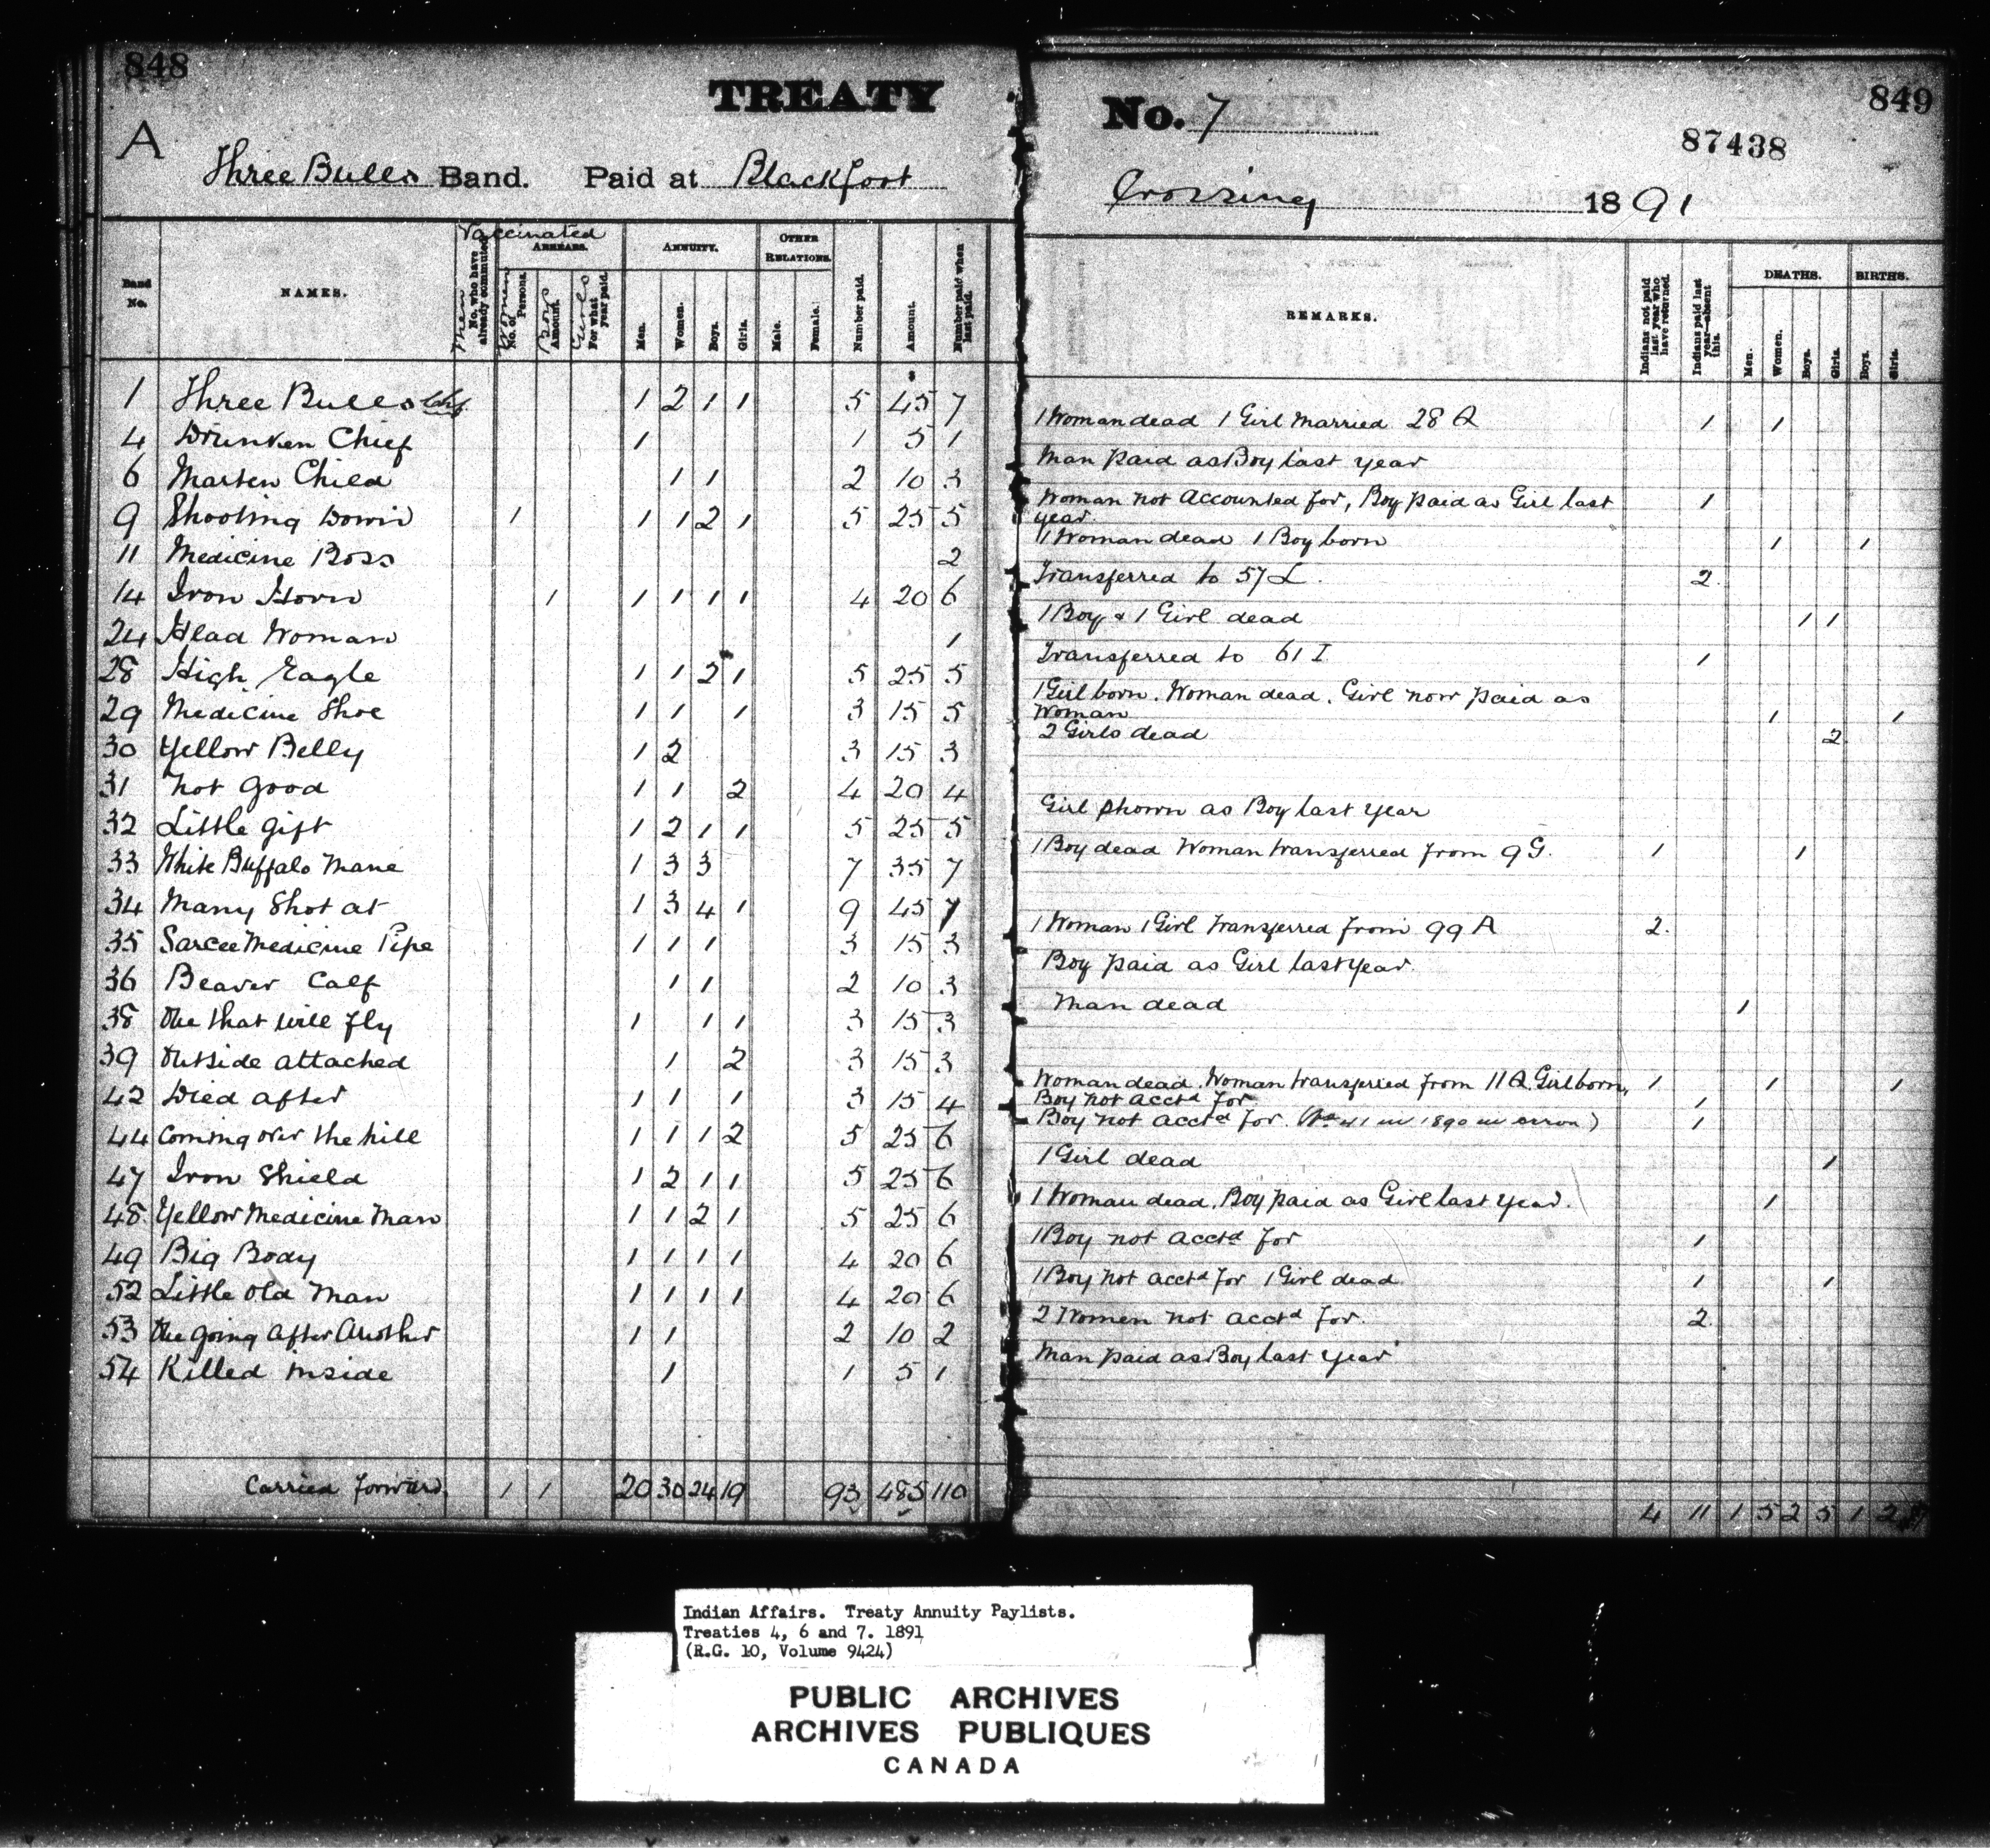 848
TREATY
A
Three Bulls Band. Paid at Blackfoot
No. 7
849
87438
Crossing 1891
Vaccinated
Band No.
NAMES.
Men No. who have already commuted
ARREARS.
Women No. of Persons.
Boys Amount.
Girls For what year paid.
ANNUITY.
Men.
Women.
Boys.
Girls.
OTHER RELATIONS.
Male.
Female.
Number paid.
Amount.
Number paid when last paid.
REMARKS.
Indians not paid last year who have returned.
Indians paid last year—absent this.
DEATHS.
Men.
Women.
Boys.
Girls.
BIRTHS.
Boys.
Girls.
1 Three Bulls Chf. 1 2 1 1 5 45 7 1 Woman dead 1 Girl Married 28 A 1 1
4 Drunken Chief 1 1 5 1 Man paid as Boy last year
6 Marten Child 1 1 2 10 3 Woman not accounted for, Boy paid as Girl last year. 1
9 Shooting Down 1 1 1 2 1 5 25 5 1 Woman dead 1 Boy born 1 1
11 Medicine Boss 2 Transferred to 57 L. 2
14 Iron Horn 1 1 1 1 1 4 20 6 1 Boy & 1 Girl dead 1 1
24 Head Woman 1 Transferred to 61 I 1
28 High Eagle 1 1 2 1 5 25 5 1 Girl born. Woman dead. Girl now paid as Woman 1 1
29 Medicine Shoe 1 1 1 3 15 5 2 Girls dead 2
30 Yellow Belly 1 2 3 15 3
31 Not Good 1 1 2 4 20 4 Girl shown as Boy last year
32 Little Gift 1 2 1 1 5 25 5 1 Boy dead Woman transferred from 9 G. 1 1
33 White Buffalo Mane 1 3 3 7 35 7
34 Many Shot at 1 3 4 1 9 45 7 1 Woman 1 Girl transferred from 99 A 2.
35 Sarcee Medicine Pipe 1 1 1 3 15 3 Boy paid as Girl last year.
36 Beaver Calf 1 1 2 10 3 Man dead 1
38 One that will fly 1 1 1 3 15 3
39 Outside attached 1 2 3 15 3
42 Died after 1 1 1 3 15 4 Woman dead. Woman transferred from 11 A. Girl born, 1 1 1
Boy not acctd for. 1
44 Coming over the hill 1 1 1 2 5 25 6 Boy not acctd for. (No 41 in 1890 in error) 1
47 Iron Shield 1 2 1 1 5 25 6 1 Girl dead 1
48 Yellow Medicine Man 1 1 2 1 5 25 6 1 Woman dead. Boy paid as Girl last year. 1
49 Big Body 1 1 1 1 4 20 6 1 Boy not acctd for 1
52 Little Old Man 1 1 1 1 4 20 6 1 Boy not acctd for 1 Girl dead 1 1
53 One going after Another 1 1 2 10 2 2 Women not acctd for. 2
54 Killed inside 1 1 5 1 Man paid as Boy last year
Carried forward. 1 1 20 30 24 19 93 485 110 4 11 1 5 2 5 1 2
Indian Affairs. Treaty Annuity Paylists.
Treaties 4, 6 and 7. 1891
(R.G. 10, Volume 9424)
PUBLIC ARCHIVES
ARCHIVES PUBLIQUES
CANADA